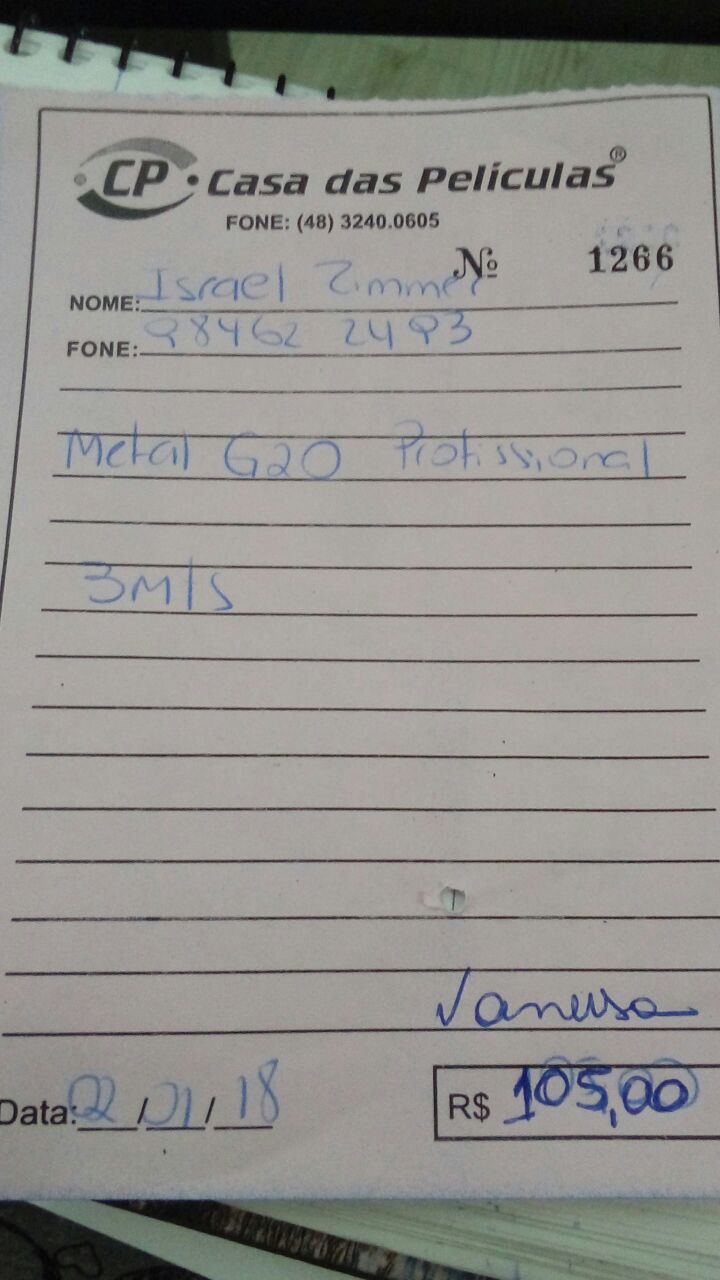 CP Casa das Películas®
FONE: (48) 3240.0605
Nº 1266
NOME: Israel Zimmer
FONE: 98462 2493
Metal G20 Profissional
3M/S
Vanessa
Data: 02/01/18
R$ 105,00